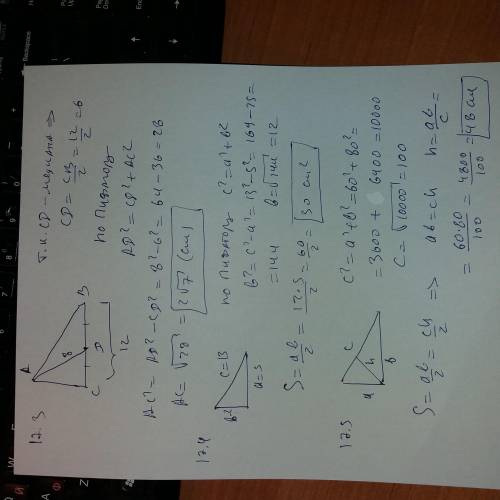 17.3
A
8
C D B
12
т.к. CD – медиана ⇒
CD = CB/2 = 12/2 = 6
по Пифагору
AD² = CD² + AC²
AC² = AD² – CD² = 8² – 6² = 64 – 36 = 28
AC = √28 = 2√7 (cm)
17.4
b² c=13
a=5
по Пифагору c² = a² + b²
b² = c² – a² = 13² – 5² = 169 – 25 =
= 144 b = √144 = 12
S = ab/2 = 12·5/2 = 60/2 = 30 cm²
17.5
a c
h
b
c² = a² + b² = 60² + 80² =
= 3600 + 6400 = 10000
c = √10000 = 100
S = ab/2 = ch/2 ⇒ ab = ch h = ab/c =
= 60·80/100 = 4800/100 = 48 cm